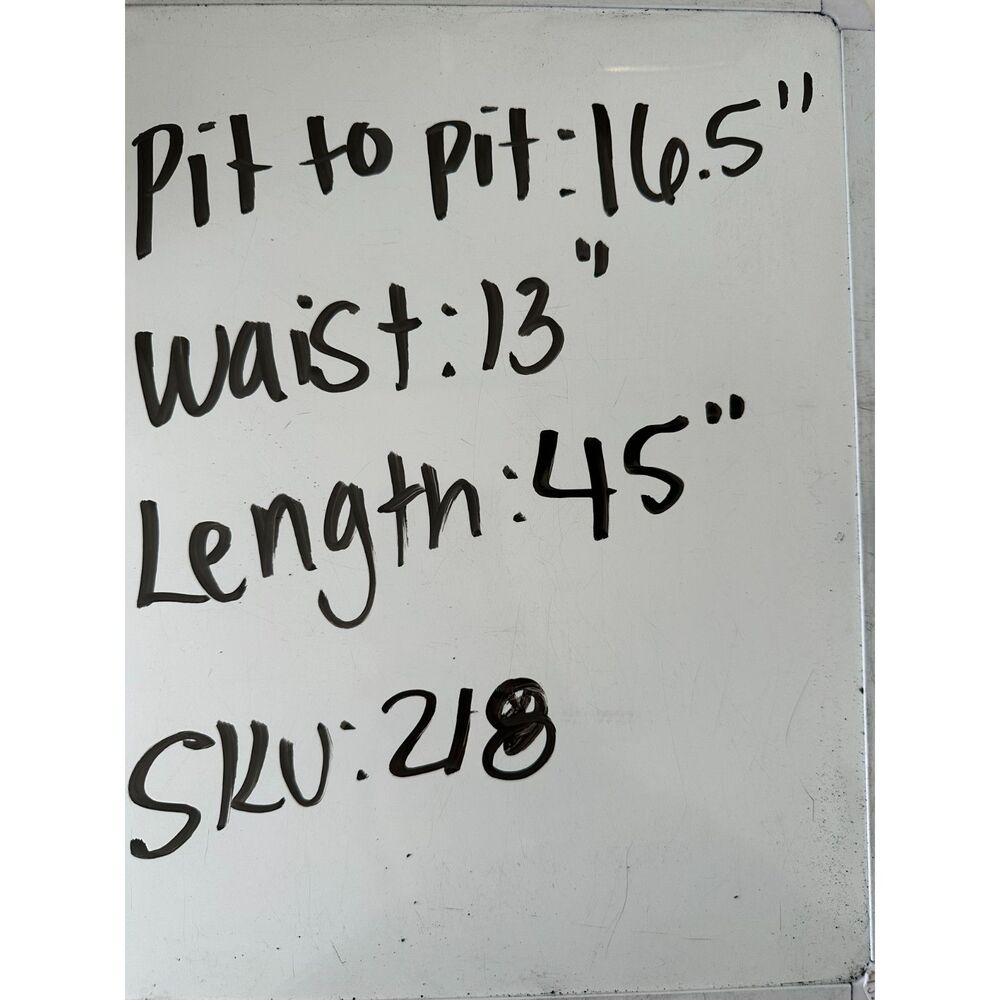 Pit to pit: 16.5"
Waist: 13"
Length: 45"
SKU: 218